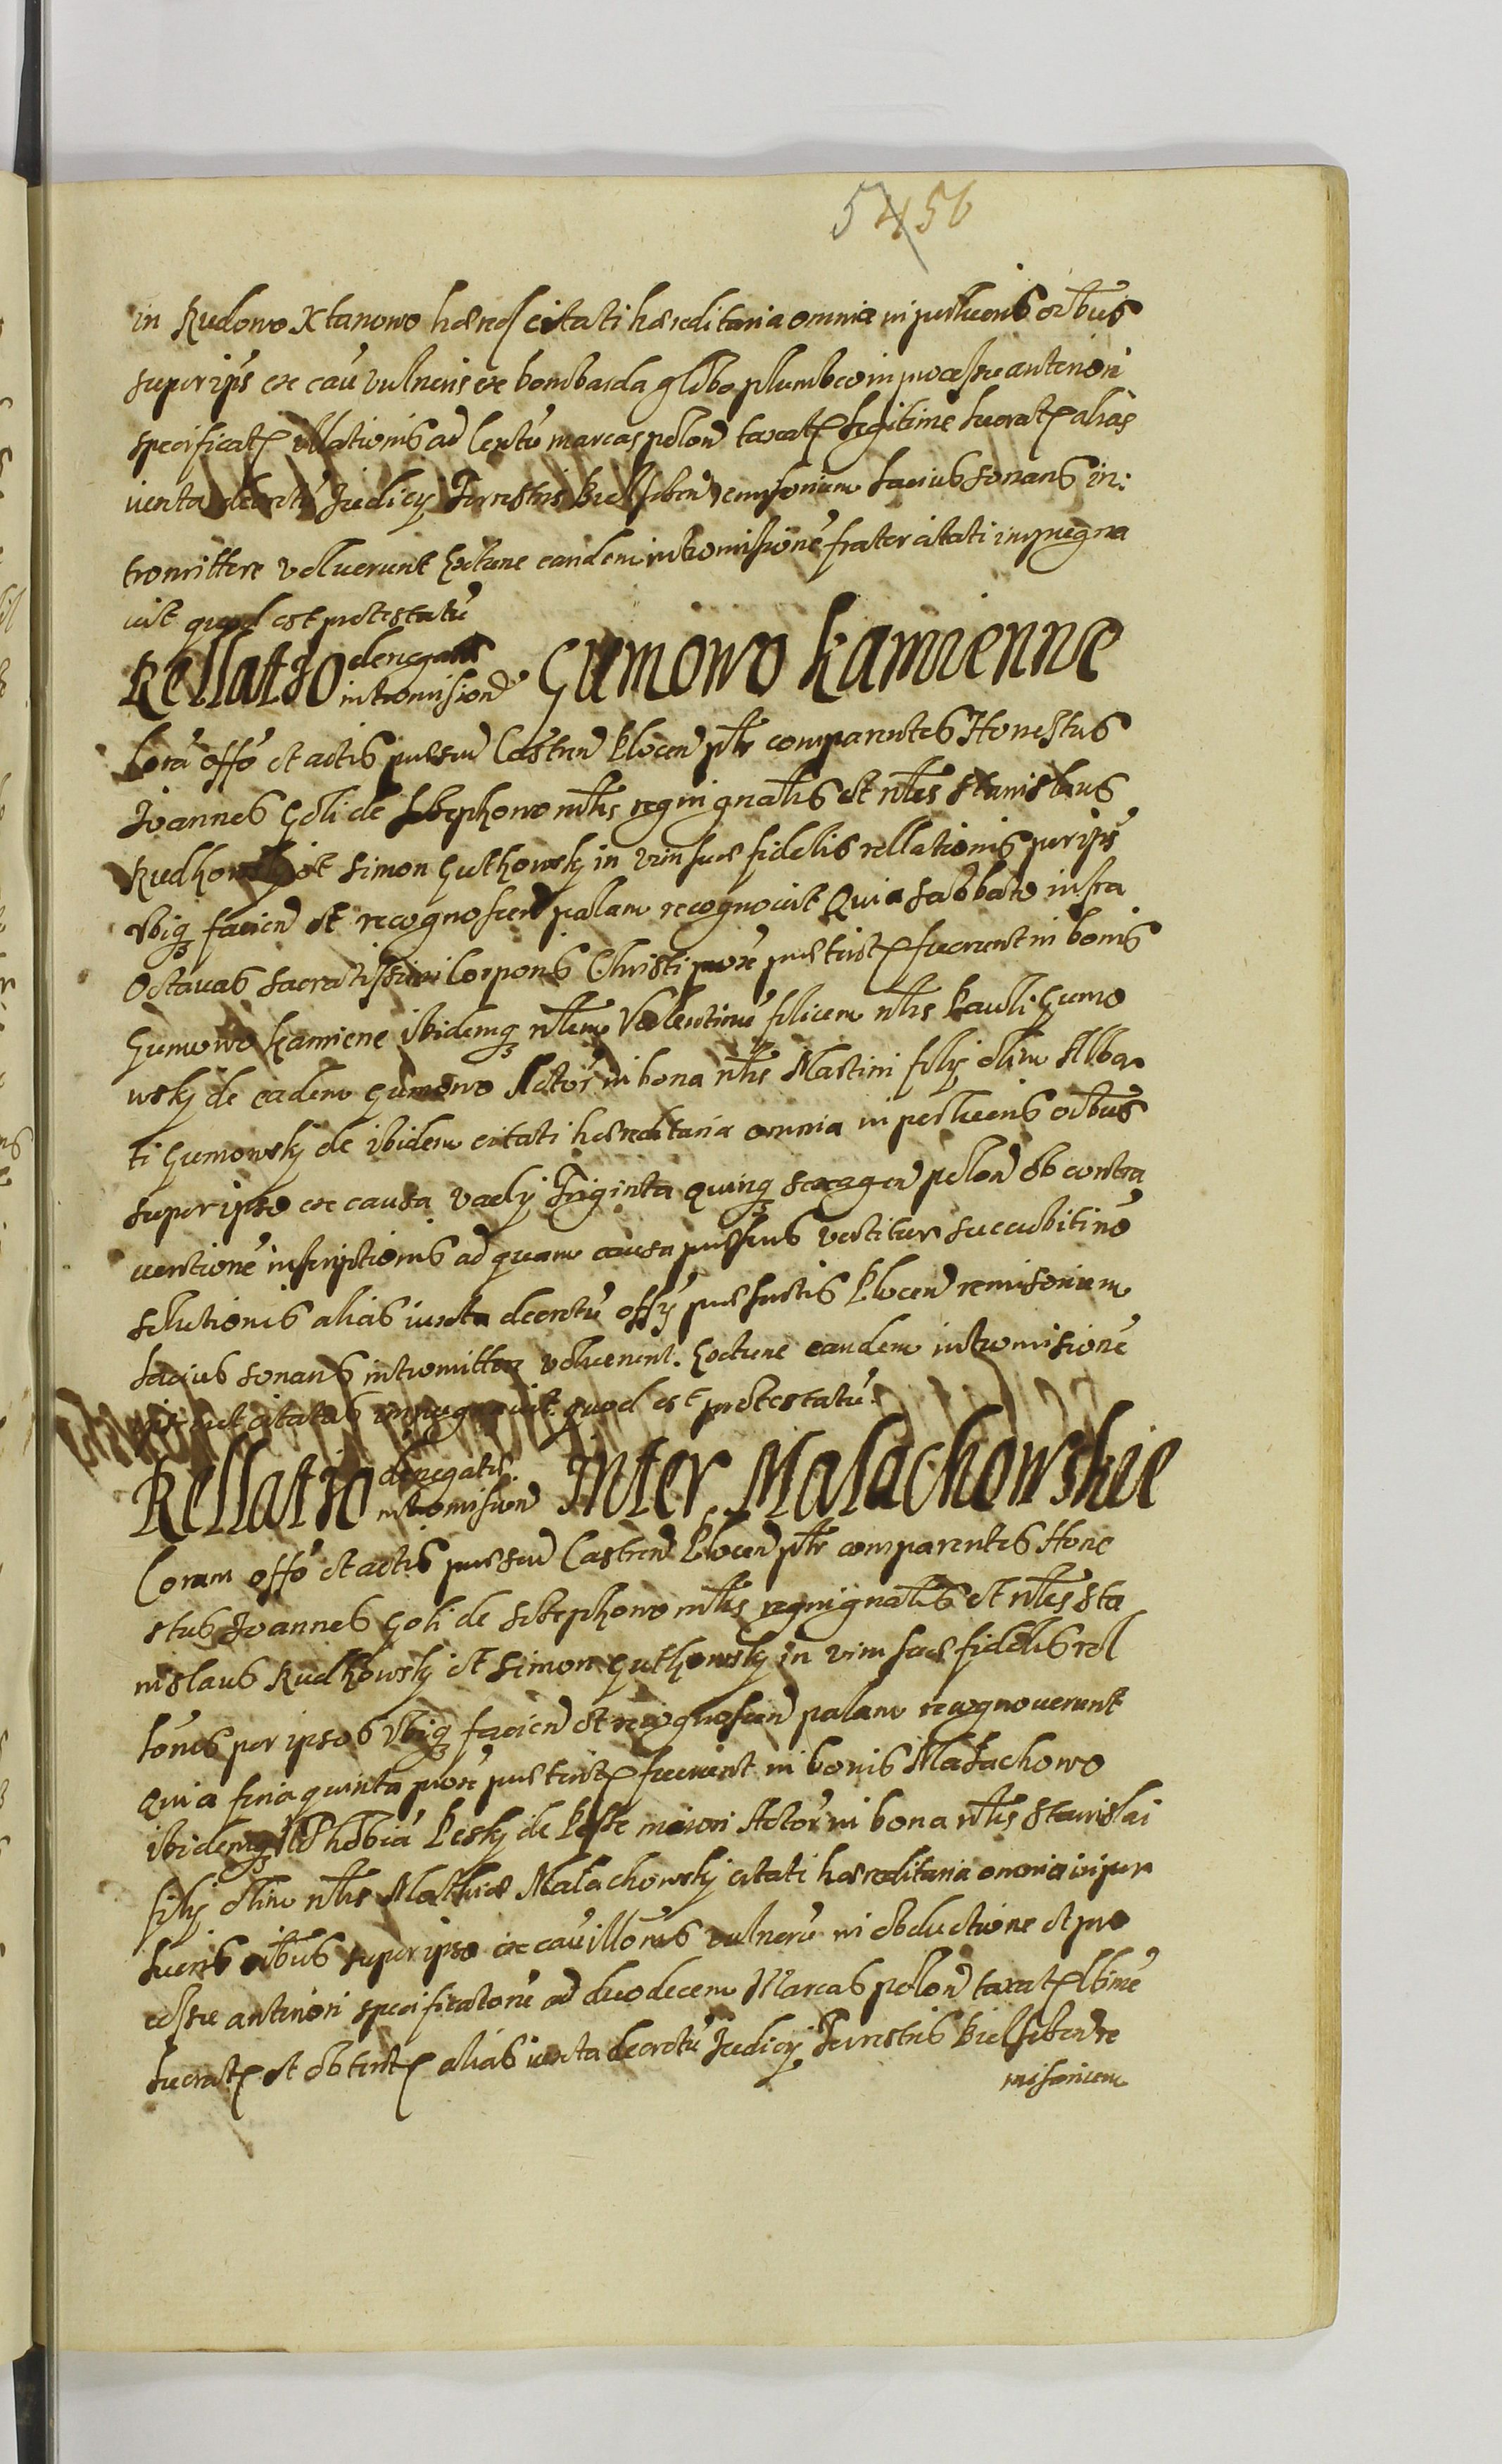 54 56
in Rudowo Xtanowo hæred citati hæreditaria omnia inpertinens oibus
super ips ex cau vulneris ex bombarda globo plumbeo in processu anteriori
specificat illationis ad Centu marcas polon taxat legitime lucrat alias
iuxta decretu Judicy Terrestris Bielscen remissorium lacius sonans in:
tromittere voluerunt hoctunc eandem intromissione frater citati inpugna
uit quod est protestatu
Rellatio denegatæ intromission Gumowo Kamienne
Cora offo et actis pns Castren Plocen pltr comparentes Honestus
Joannes Goli de Szczephowo mtlis regni gnalis et nbles Stanislaus
Rudkowsky et Simon Guthowsky in vim suæ fidelis rellationis per ips
vbiq facien et recognoscen palam recognouit Quia sabbato infra
Octauas sacratissimi Corporis Christi prox præterit fuerunt in bonis
Gumowo Kamiene ibidemq nblem Valentinu filium nblis Pauli Gumo
wsky de eadem Gumowo Actor in bona nblis Martini fily olim Alber
ti Gumowsky de ibidem citati hæreditaria omnia in pertinens oibus
super ipso ex causa vady Triginta quinq sexagen polon ob contra
uentione inscriptionis ad quam causa præsens vertitur succubitine
solutionis alias iuxta decretu offy præsentis Plocen remissorium
lacius sonans intromittere voluerunt. hoctunc eandem intromissione
citatus inpugnauit quod est protestatu.
Rellatio denegatæ intromission inter Malachowskie
Coram offo et actis præsen Castren Plocen pltr comparentes Hone
stus Joannes Goli de Szczephowo mtlis regni gnalis et nbles Sta
nislaus Rudkowsky et Simon Guthowsky in vim suæ fidelis rel
tones per ipsos vbiq facien et recognoscen palam recognouerunt
Quia feria quinta prox præterit fuerunt in bonis Małachowo
ibidemq Thobia Lesky de Lesse maiori Actor in bona nblis Stanislai
fily olim nblis Mathiæ Małachowsky citati hæreditaria omnia in per
tinens oibus super ipso ex cau illonis vulneru in obductione et pro
cessu anteriori specificatoru ad duodecem Marcas polon taxat ltime
lucrat et obtent alias iuxta decretu Judicy Terrestris Bielscen re
missorium